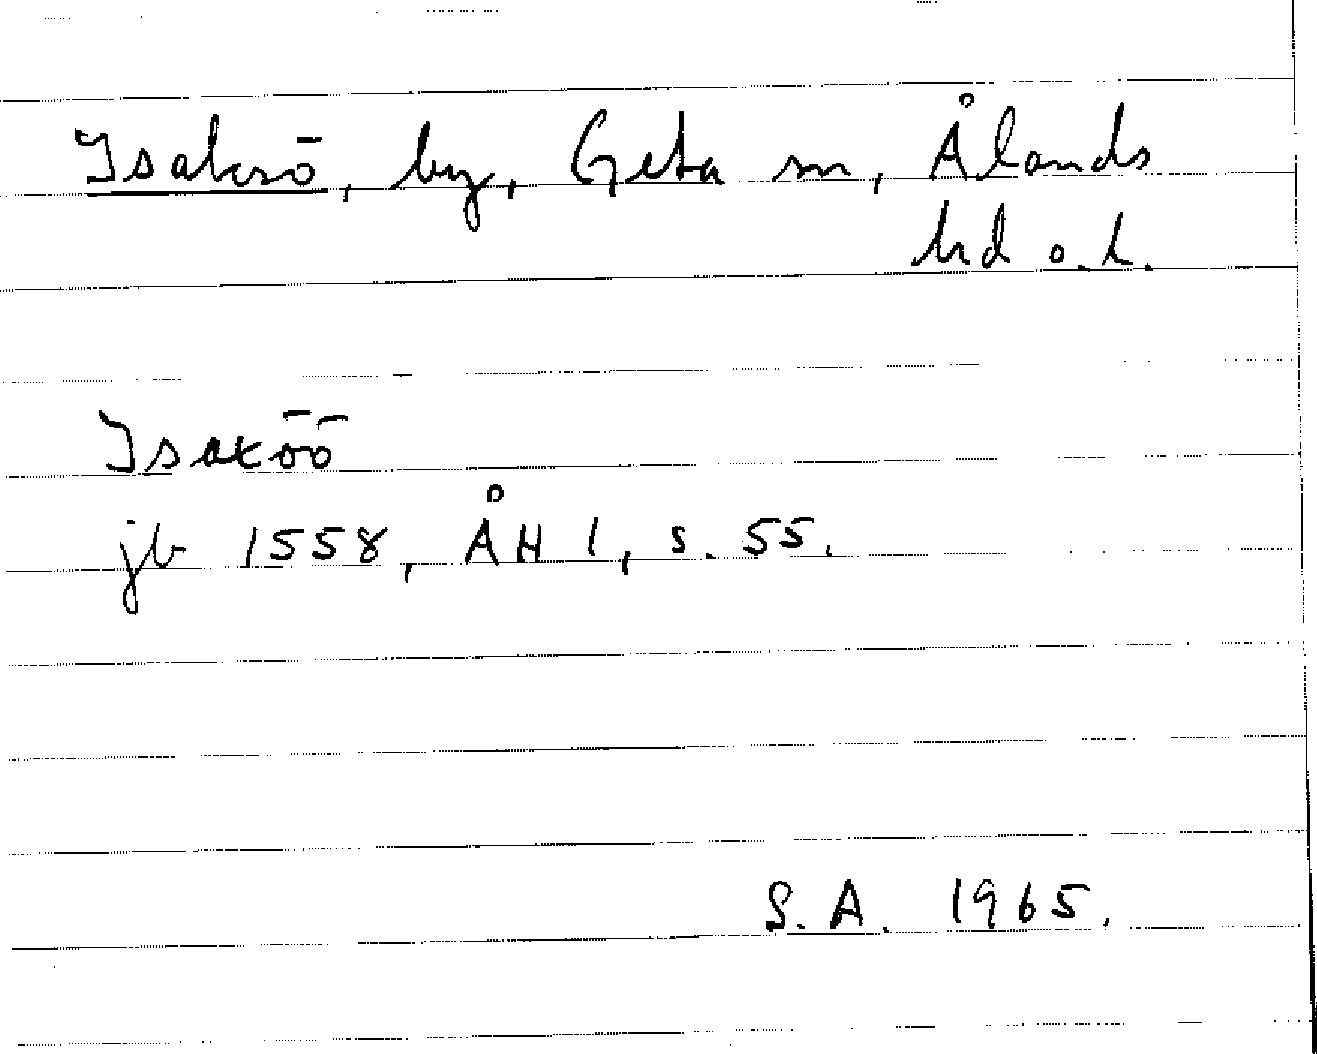 Isaksö, by, Geta sn, Ålands
hd o. l.
Isaxöö
jb 1558, ÅH 1, s. 55.
S.A. 1965.